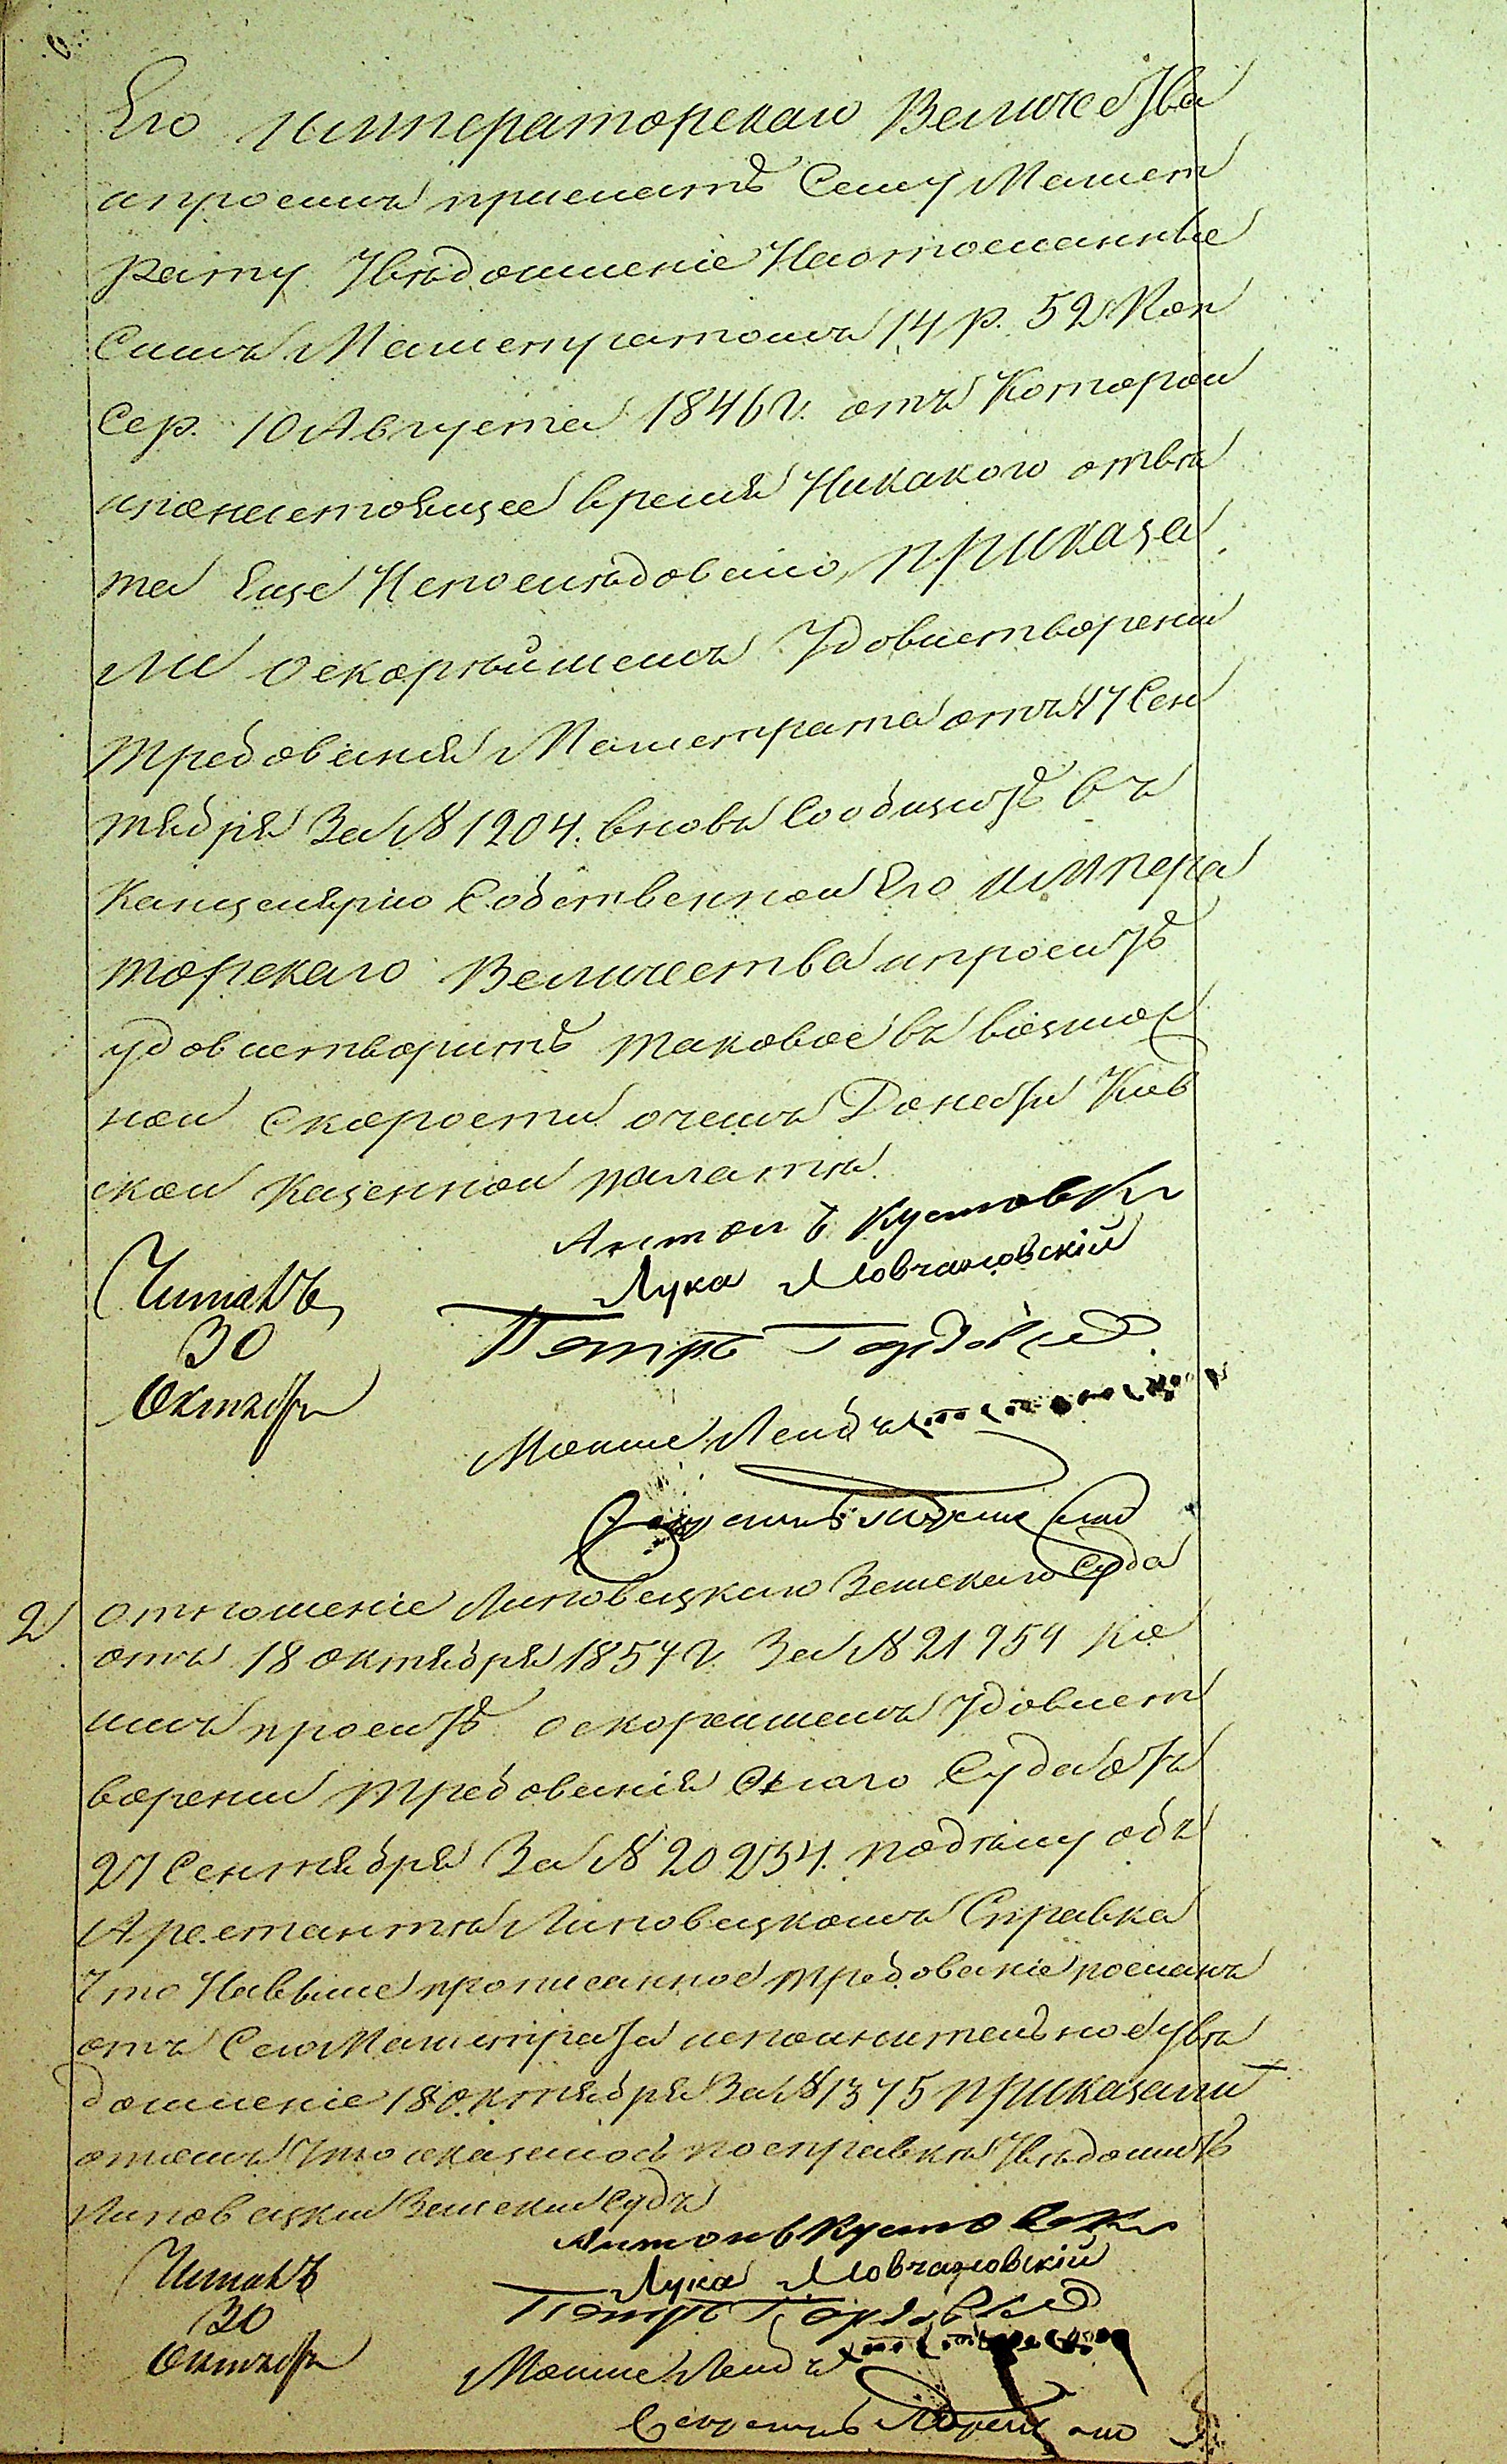 Его Императорскаго Величества
ипросить прислать Сему Магист
рату Уведомленіе Наотосланные
Симъ Магистратомъ 14 р. 52 Коп
Сер. 10 Августа 1846 г. отъ Которой
ипонастоящее время Никакого отвѣ
та Еще Непоследовало, приказа
ли оскорѣйшемъ Удовлетвореніи
требованія Магистрата отъ 17 Сен
тября За № 1204. вновь Сообщить въ
Канцелярію Собственной Его Импера
торскаго Величества ипросить
удовлетворить таковое въ возмож
ной скорости очемъ Донести Кіев
ской Казенной палатѣ.
Антонъ Кустовски
Лука Мовчановскій
Читалъ
30
Октября
Петръ
Мошко Лейба
Секретарь
2) Отношеніе Липовецкаго Земскаго Суда
отъ 18 октября 1854 г. За № 21954 Кіе
имъ проситъ оскорейшемъ Удовлет
вореніи требованія Онаго Суда отъ
27 Сентября За № 20234. подѣлу объ
Арестантѣ Липовецкомъ Справка
Что Навыше прописанное требованіе посланъ
отъ Сего Магистрата исполнительное увѣ
домленіе 18 октября За № 1375 приказали
отомъ Что оказалось посправкѣ Увѣдомить
Липовецкий Земский Судъ
Антонъ Кустовски
Лука Мовчановскій
Читалъ
30
Октября
Петръ
Мошко Лейба
Секретарь